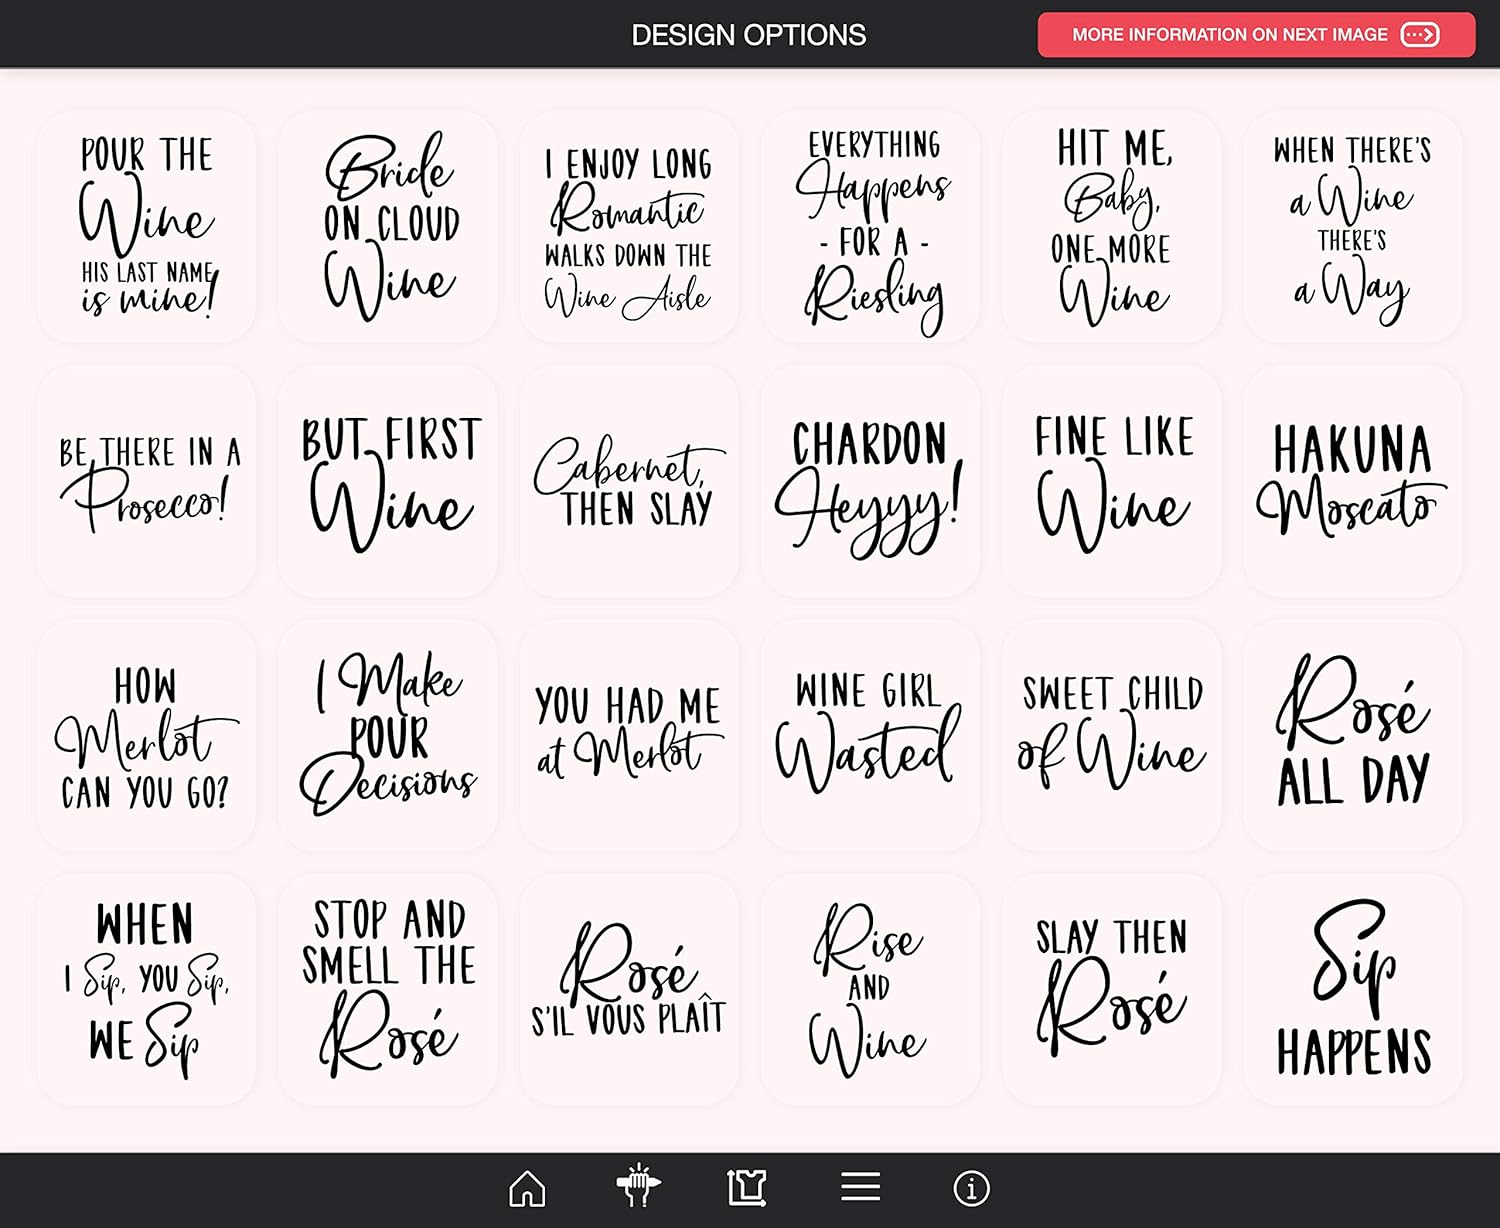 DESIGN OPTIONS
MORE INFORMATION ON NEXT IMAGE
POUR THE
Wine
HIS LAST NAME
is mine!
Bride
ON CLOUD
Wine
I ENJOY LONG
Romantic
WALKS DOWN THE
Wine Aisle
EVERYTHING
Happens
- FOR A -
Riesling
HIT ME,
Baby,
ONE MORE
Wine
WHEN THERE'S
a Wine
THERE'S
a Way
BE THERE IN A
Prosecco!
BUT FIRST
Wine
Cabernet,
THEN SLAY
CHARDON
Heyyy!
FINE LIKE
Wine
HAKUNA
Moscato
HOW
Merlot
CAN YOU GO?
I Make
POUR
Decisions
YOU HAD ME
at Merlot
WINE GIRL
Wasted
SWEET CHILD
of Wine
Rosé
ALL DAY
WHEN
I Sip, YOU Sip,
WE Sip
STOP AND
SMELL THE
Rosé
Rosé
S'IL VOUS PLAÎT
Rise
AND
Wine
SLAY THEN
Rosé
Sip
HAPPENS